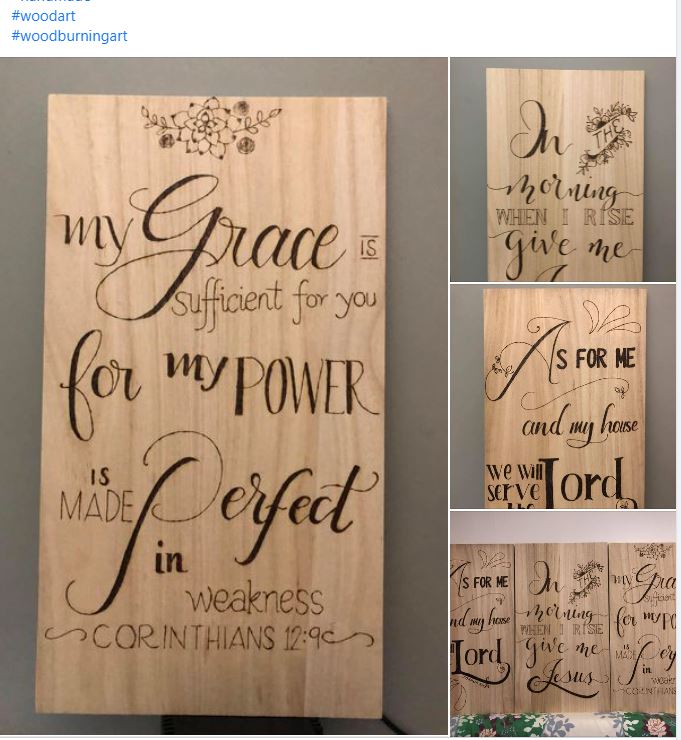 #woodart
#woodburningart
my Grace IS
sufficient for you
for my POWER
IS
MADE Perfect
in
weakness
CORINTHIANS 12:9
In THE
morning
WHEN I RISE
give me
AS FOR ME
and my house
we will
serve Lord
AS FOR ME
nd my house
Lord
In THE
morning
WHEN I RISE
give me
Jesus
my Gra
suffici
for my PO
IS
MADE Per
in
weakn
CORINTHIANS